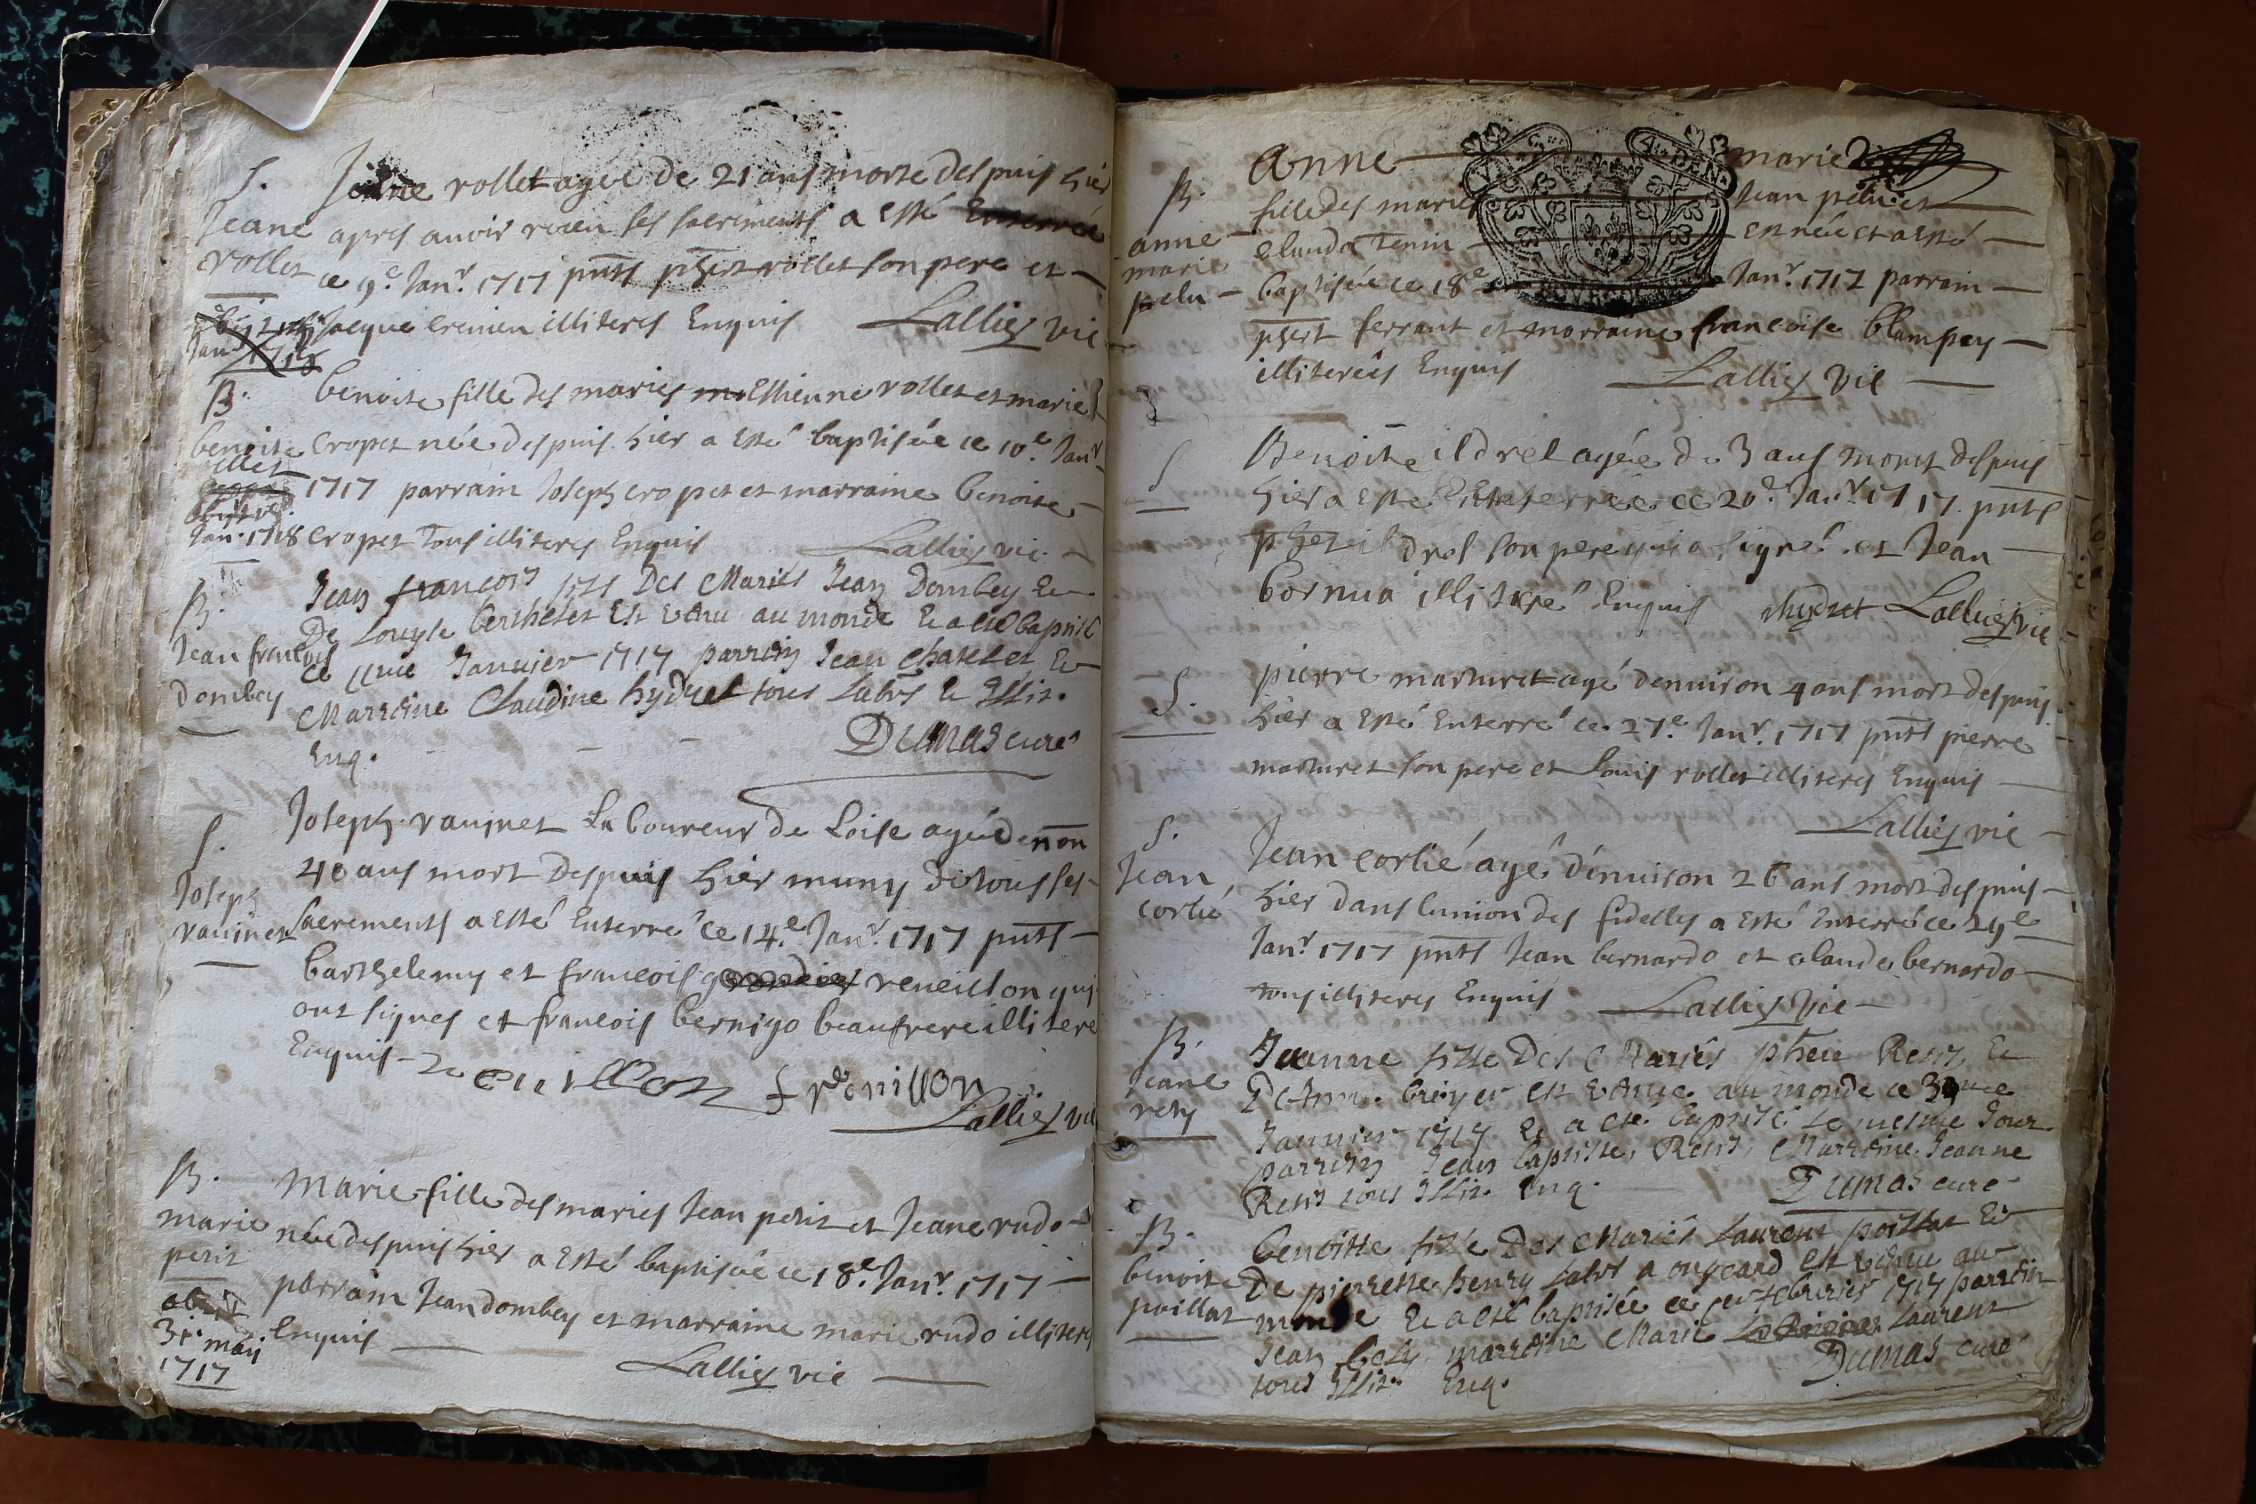 S.
Jeane
rollet
Jeane rollet agée de 21 ans morte despuis hier
apres auoir receu ses sacrements a esté Enterrée
ce 9e. Janr. 1717 pnts phert rollet son pere et
Jacque illiteres Enquis Lallier vic
B.
benoite
rollet
Janr. 1718
benoite fille des maries Estienne rollet et marie
cropet née despuis hier a esté baptisée ce 10e. Janr
1717 parrain Joseph cropet et marraine benoite
cropet tous illiteres Enquis Lallier vic.
B.
Jean francois
dombey
Jean francois fils Des Mariés Jean Dombey Et
De Louyse berthelet Est venu au monde Et a esté baptisé
ce Januier 1717 parrein Jean chatelet Et
Marreine Claudine hydrel tous Labrs Et Illit.
Enq. Dumas curé
S.
Joseph
rauinet
Joseph rauinet Laboureur de Loise agé denon
40 ans mort despuis hier muny de tous ses
sacrements a esté Enterré ce 14e. Janr. 1717 pnts
barthelemy et francois reueillon qui
ont signes et francois bernigo beaufrere illitere
Enquis
Lallier vic
B.
marie
petit
obiit
31e may
1717
Marie fille des maries Jean petit et Jeane rudo
née despuis hier a esté baptisée ce 18e. Janr. 1717
parrain Jean dombey et marraine marie rudo illiteres
Enquis
Lallier vic
B.
anne
marie
pelu
Anne marie
fille des maries Jean pelu et
clauda est née et a esté
baptisée ce 18e Janr. 1717 parrain
phert ferrant et marraine francoise blampey
illiterées Enquis Lallier vic
S
Benoite ildrel agée de 3 ans morte despuis
hier a esté Enterrée ce 20e. Janr. 1717 pnts
ildrel son pere qui a signé et Jean
bornua illiteré Enquis Lallier vic
S.
pierre marturet agé denuiron 4 ans mort despuis
hier a esté Enterré ce 27e. Janr. 1717 pnts pierre
marturet son pere et Louis rollet illiteres Enquis
Lallier vic
S.
Jean
corlié
Jean corlié agé d'enuiron 26 ans mort despuis
hier dans l'union des fidelles a esté Enterré ce 29e
Janr. 1717 pnts Jean bernardo et claude bernardo
tous illiteres Enquis Lallier vic
B.
Jeane
rety
Jeanne fille Des Mariés Rety Et
D'Anne est venüe au monde ce
Januier 1717 Et a esté baptisé le mesme Jour
parrein Jean baptiste Rety, Marreine Jeanne
Rety tous Illit. Enq. Dumas curé
B.
benoite
poillat
benoitte fille Des Mariés Laurent poillat Et
De pierrette henry Labrs a ongeard Est venue au
monde Et a esté baptisée ce feburier 1717 parrein
Jean marreine Marie Laurent
tous Illit. Enq. Dumas curé